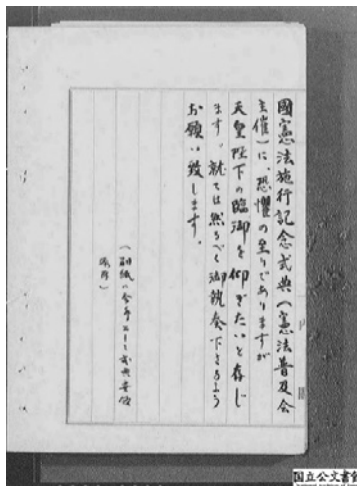 國憲法施行記念式典(憲法普及会
主催)に、恐懼の至りでありますが
天皇陛下の臨御を仰ぎたいと存じ
ます。就ては然るべく御執奏下さるよう
お願い致します。
(別紙に参考として式典要領
添附)
内 閣
国立公文書館